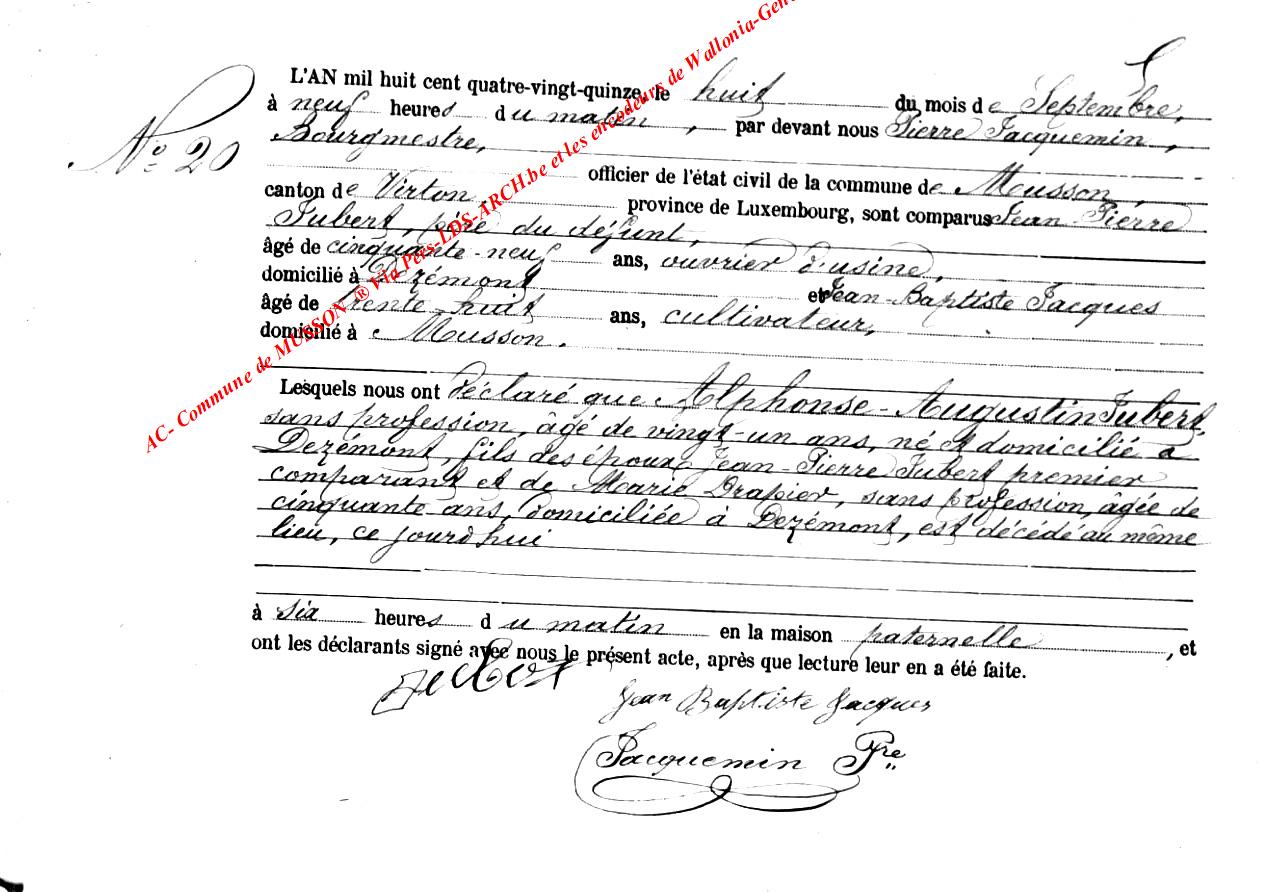 L'AN mil huit cent quatre-vingt-quinze, le huit du mois de Septembre,
à neuf heures du matin, par devant nous Pierre Jacquemin,
Nº 20
Bourgmestre,
officier de l'état civil de la commune de Musson,
canton de Virton, province de Luxembourg, sont comparus Jean-Pierre
Jubert, père du défunt,
âgé de cinquante-neuf ans, ouvrier d'usine,
domicilié à Dezémont et Jean-Baptiste Jacques
âgé de trente-huit ans, cultivateur,
domicilié à Musson.
Lesquels nous ont déclaré que Alphonse-Augustin Jubert,
sans profession, âgé de vingt-un ans, né et domicilié à
Dezémont, fils des époux Jean-Pierre Jubert premier
comparant et de Marie Drapier, sans profession, âgée de
cinquante ans, domiciliée à Dezémont, est décédé au même
lieu, ce jourd'hui
à six heures du matin en la maison paternelle, et
ont les déclarants signé avec nous le présent acte, après que lecture leur en a été faite.
Jubert
Jean Baptiste Jacques
Jacquemin Pre
AC- Commune de MUSSON ® Via Pers-LDS-ARCH.be et les encodeurs de Wallonia-Gen